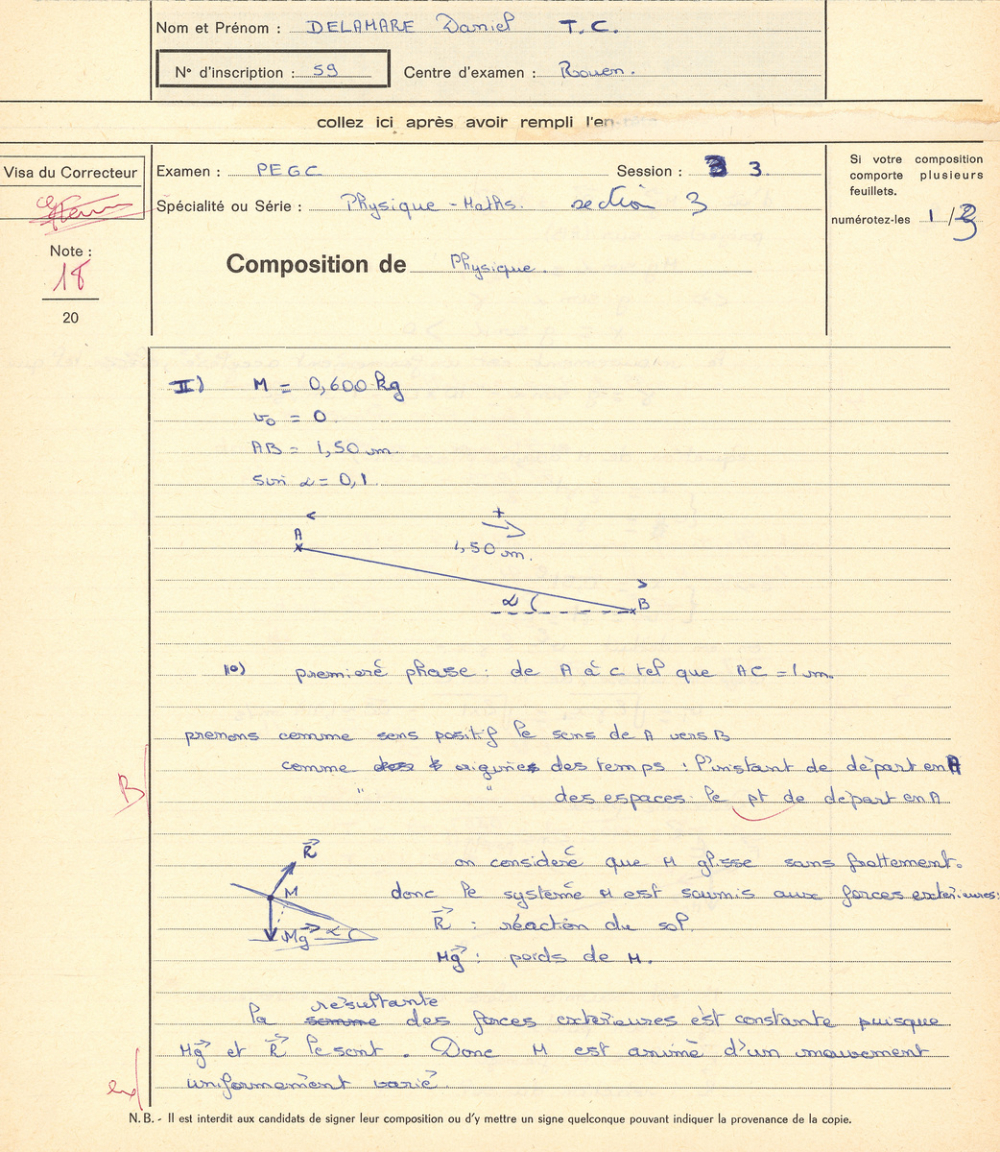 Nom et Prénom : DELAMARE Daniel T.C.
N° d'inscription : 59 Centre d'examen : Rouen.
collez ici après avoir rempli l'en
Visa du Correcteur
Examen : PEGC Session : 3 3.
Si votre composition
comporte plusieurs
feuillets.
numérotez-les 1/3
Spécialité ou Série : Physique - Maths. section 3
Note :
18
20
Composition de Physique.
II) M = 0,600 kg
v₀ = 0.
AB = 1,50 m.
sin α = 0,1
+
A
1,50 m.
α B
1°) premierè phase : de A à C tel que AC = 1 m.
prenons comme sens positif le sens de A vers B
comme origines des temps : l'instant de départ en A
B
" " des espaces : le pt de départ en A
R
M
Mg α
on considerè que M glisse sans frottement.
donc le système M est soumis aux forces extérieures:
R : réaction du sol.
Mg : poids de M.
résultante
la somme des forces extérieures est constante puisque
Mg et R le sont. Donc M est animé d'un mouvement
uniformément varié.
N. B. - Il est interdit aux candidats de signer leur composition ou d'y mettre un signe quelconque pouvant indiquer la provenance de la copie.